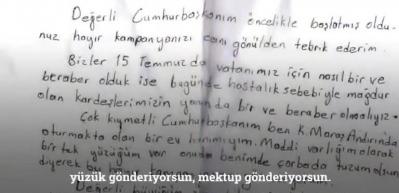 Değerli Cumhurbaşkanım öncelikle başlatmış oldu-
nuz hayır kampanyanızı canı gönülden tebrik ederim.
Bizler 15 Temmuz da vatanımız için nasıl bir ve
beraber olduk ise bugünde hastalık sebebiyle mağdur
olan kardeşlerimizin yanında bir ve beraber olmalıyız.
Çok kıymetli Cumhurbaşkanım ben K. Maraş Andırında
oturmakta olan bir ev hanımıyım. Maddi varlığım olarak
bir tek yüzüğüm var onunda benimde çorbada tuzum olsun
diyerek bu
yüzük gönderiyorsun, mektup gönderiyorsun.
Değerli